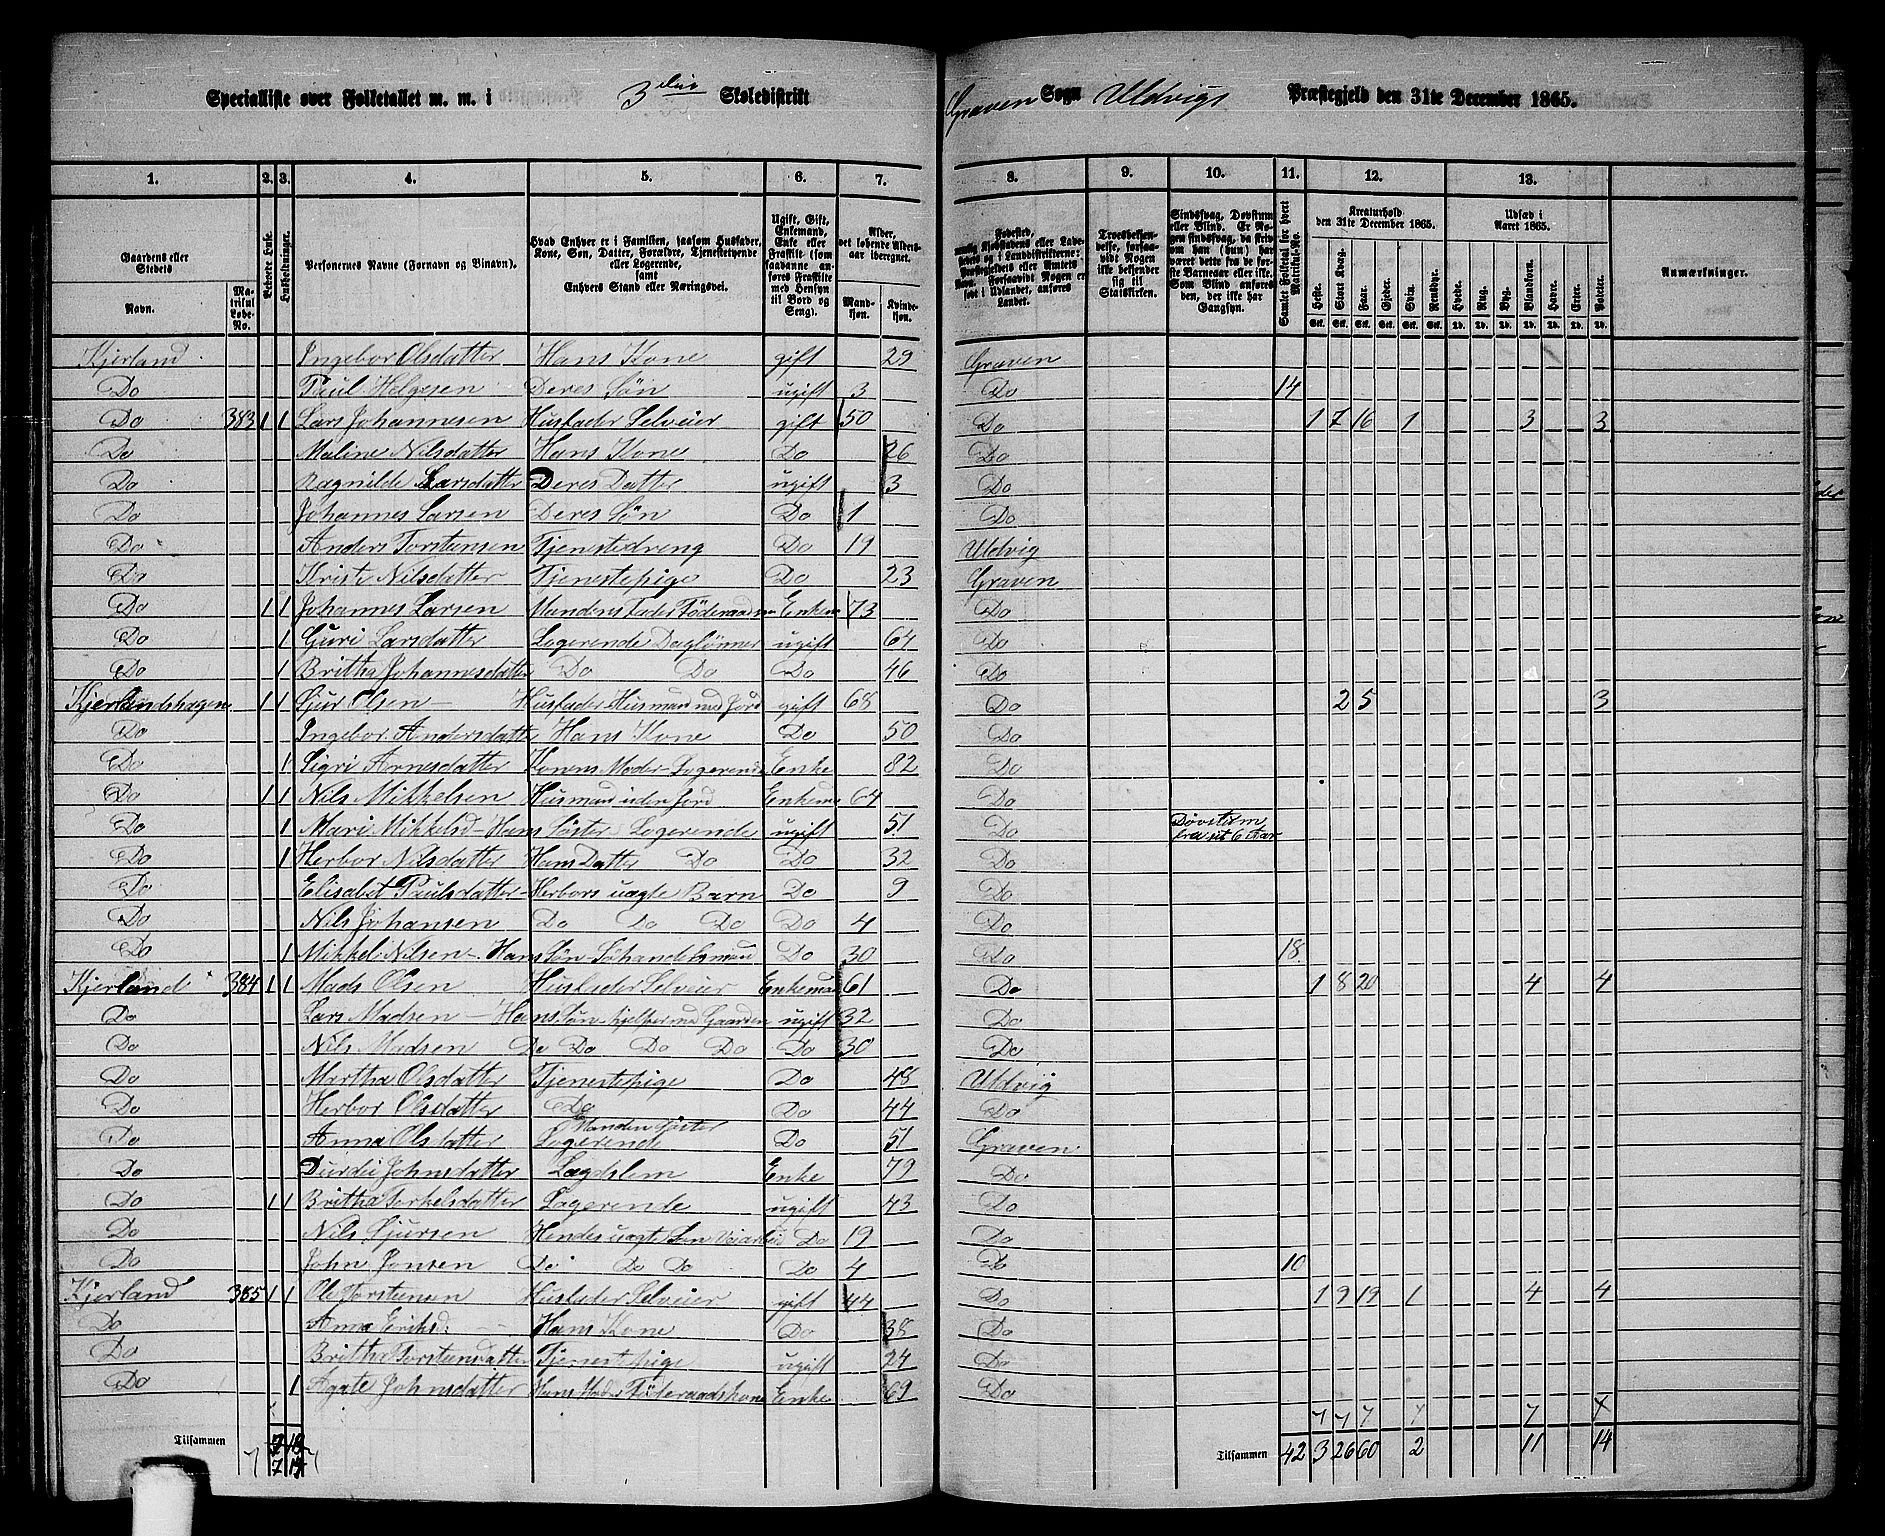 Specialliste over Folketallet m. m. i 3die Skoledistrikt Graven Sogn Uldvigs Præstegjeld den 31te December 1865.
1. 2. 3. 4. 5. 6. 7. 8. 9. 10. 11. 12. 13.
Gaardens eller Stedets Navn. Matrikul Løbe-No. Beboede Huse. Husholdninger. Personernes Navne (Fornavn og Binavn). Hvad Enhver er i Familien, saasom Husfader, Kone, Søn, Datter, Forældre, Tjenestetyende eller Logerende, samt Enhvers Stand eller Næringsvei. Ugift, Gift, Enkemand, Enke eller Fraskilt (som saadanne anføres Fraskilte med Hensyn til Bord og Seng). Alder, det løbende Aldersaar iberegnet. Mandkjøn. Kvindekjøn.
Troesbekjendelse, forsaavidt Nogen ikke bekjender sig til Statskirken. Sindssvag, Døvstum eller Blind. Samlet Folketal for hvert Matrikuls-No. Kreaturhold den 31te December 1865. Heste. Stort Kvæg. Faar. Gjeder. Svin. Rensdyr. Udsæd i Aaret 1865. Hvede. Rug. Byg. Blandkorn. Havre. Erter. Poteter. Anmærkninger.
Kjerland Ingebor Olsdatter Hans Kone gift 29 Graven
Do Paul Helgesen Deres Søn ugift 3 Do 14
Do 383 1 1 Lars Johannesen Husfader Selveier gift 50 Do 1 7 16 1 3 3
Do Maline Nilsdatter Hans Kone Do 26 Do
Do Ragnilde Larsdatter Deres Datter ugift 3 Do
Do Johannes Larsen Deres Søn Do 1 Do
Do Anders Torstensen Tjenestedreng Do 19 Uldvig
Do Kristi Nilsdatter Tjenestepige Do 23 Graven
Do 1 1 Johannes Larsen Mandens Fader Föderaadsm Enkem 73 Do
Do 1 Guri Larsdatter Logerende Daglönner ugift 64 Do
Do 1 Britha Johannesdatter Do Do Do 46 Do
Kjerlandshagen 1 1 Sjur Olsen - Husfader Husmand med Jord gift 68 Do 2 5 3
Do Ingebor Andersdatter Hans Kone Do 50 Do
Do 1 Sigri Arnesdatter Konens Moder - Logerende Enke 82 Do
Do 1 1 Nils Mikkelsen Husmand uden Jord Enkema 64 Do
Do 1 Mari Mikkelsd - Hans Søster Logerende ugift 51 Do Døvstum fra sit 6 Aar
Do 1 Herbor Nilsdatter Hans Datter Do Do 32 Do
Do Elisabet Paulsdatter - Herbors uægte Barn Do 9 Do
Do Nils Johansen Do Do Do Do 4 Do
Do 1 Mikkel Nilsen - Hans Søn - Söhandelsmand Do 30 Do 18
Kjerland 384 1 1 Mads Olsen Husfader Selveier Enkemand 61 Do 1 8 20 4 4
Do Lars Madsen - Hans Søn - hjelper md Gaarden ugift 32 Do
Do Nils Madsen Do Do Do Do Do 30 Do
Do Martha Olsdatter Tjenestepige Do 48 Uldvig
Do Herbor Olsdatter Do Do 44 Do
Do Anna Olsdatter Manden Søster Logerende Do 51 Graven
Do Durdei Johnsdatter Lægdslem Enke 79 Do
Do 1 1 Britha Torkelsdatter Logerende ugift 43 Do
Do Nils Sjursen Hendes uægte Søn Veiarbeid Do 19 Do
Do John Jonsen Do Do Do Do 4 Do 10
Kjerland 385 1 1 Ole Torstensen Husfader Selveier gift 44 Do 1 9 19 1 4 4
Do Anna Eriksd: Hans Kone Do 38 Do
Do Britha Torstensdatter Tjenestepige ugift 24 Do
Do 1 Agate Johnsdatter Hans Moder Föderaadskone Enke 69 Do
Tilsammen Tilsammen 42 3 26 60 2 11 14